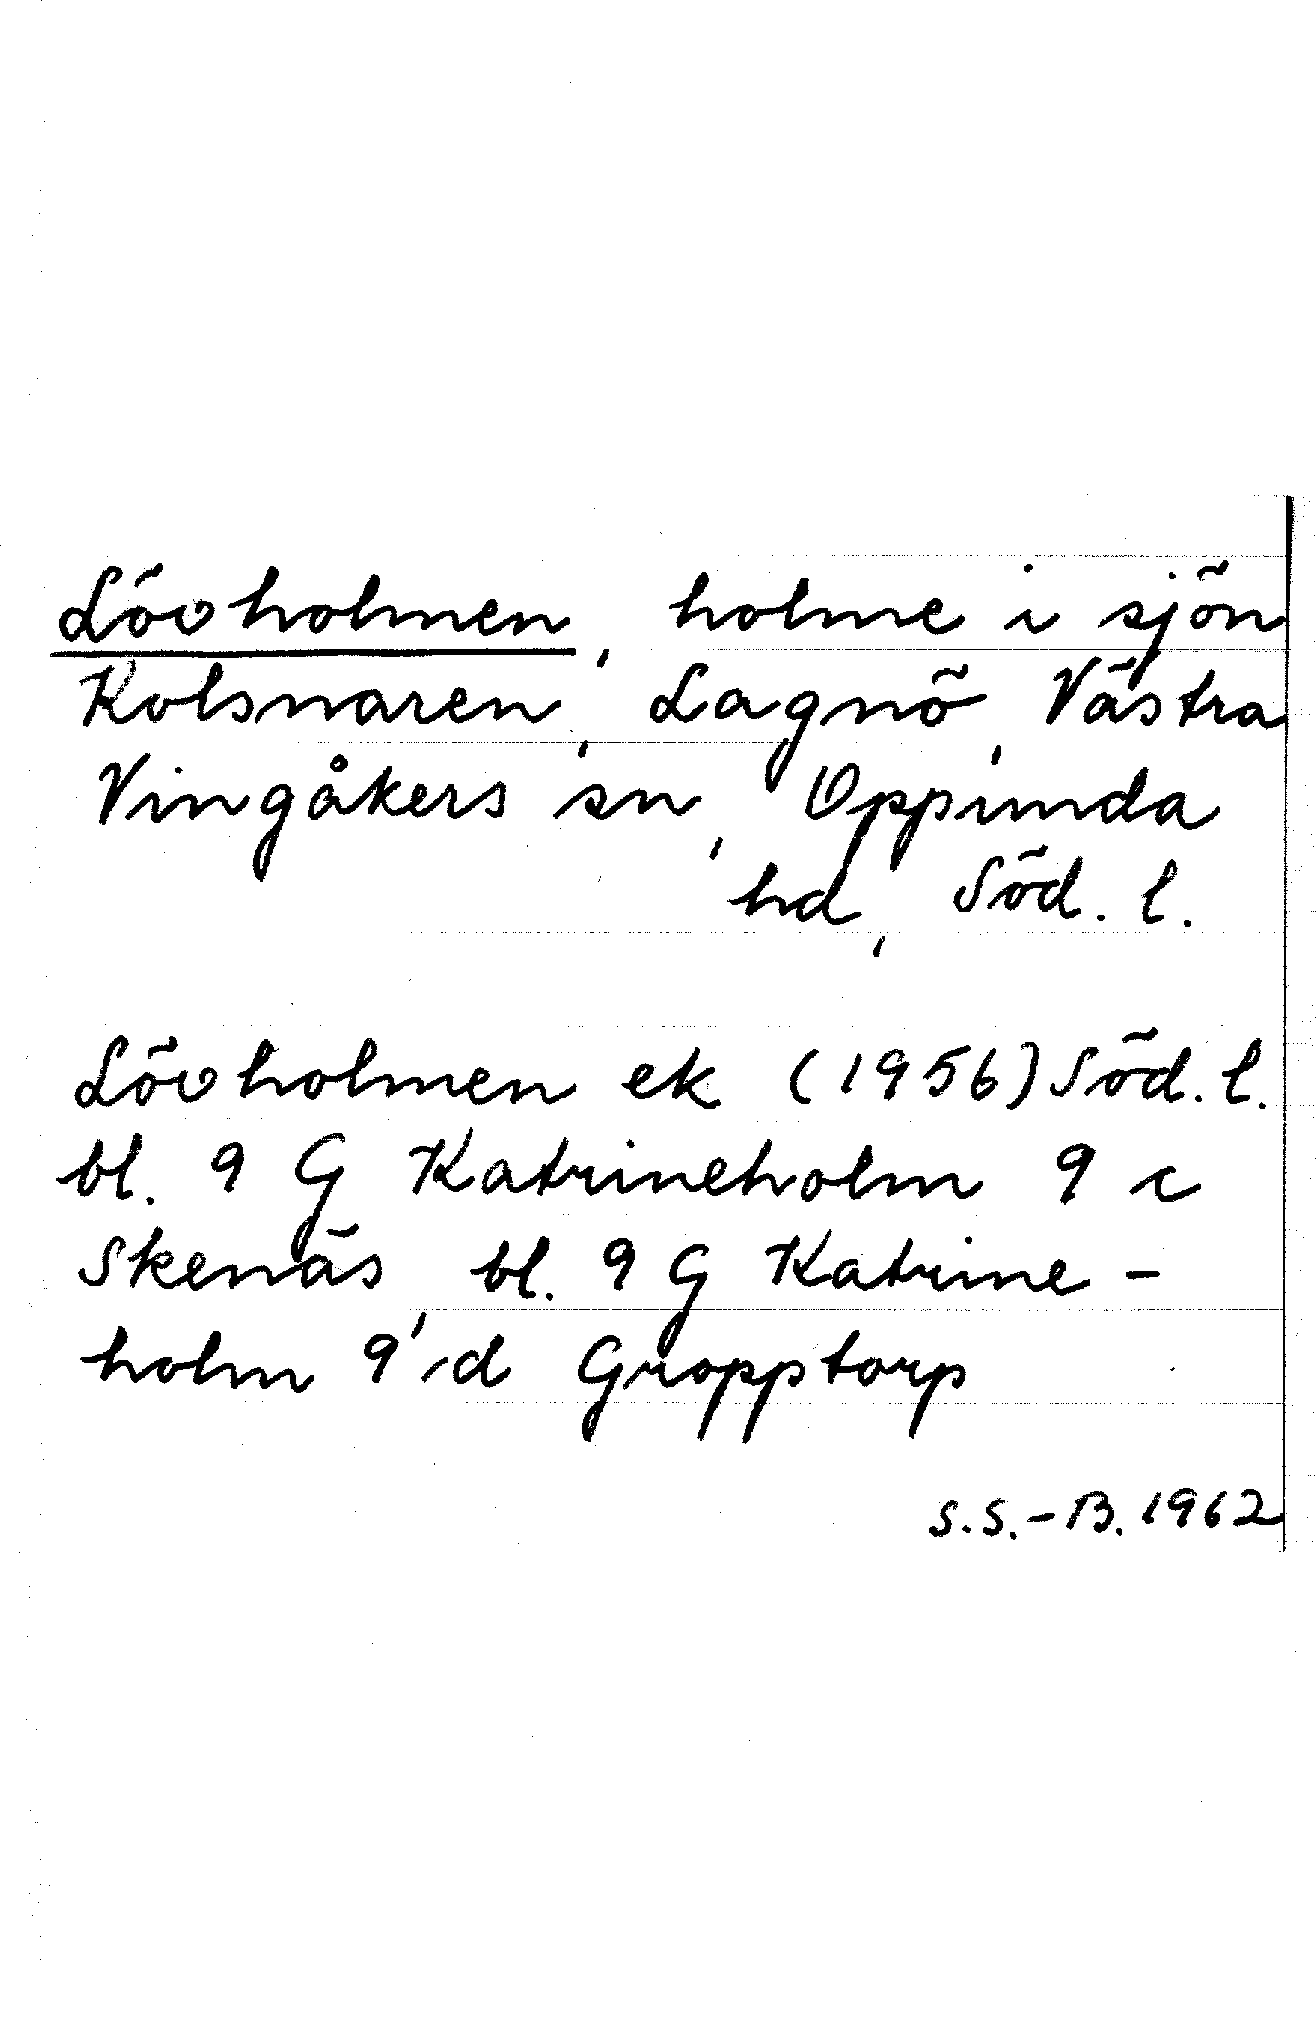 Lövholmen, holme i sjön
Kolsnaren, Lagnö, Västra
Vingåkers sn, Oppunda
hd, Söd. l.
Lövholmen ek (1956) Söd. l.
bl. 9 G Katrineholm 9 c
Skenäs, bl. 9 G Katrine-
holm 9 d Gropptorp
S.S.-B. 1962